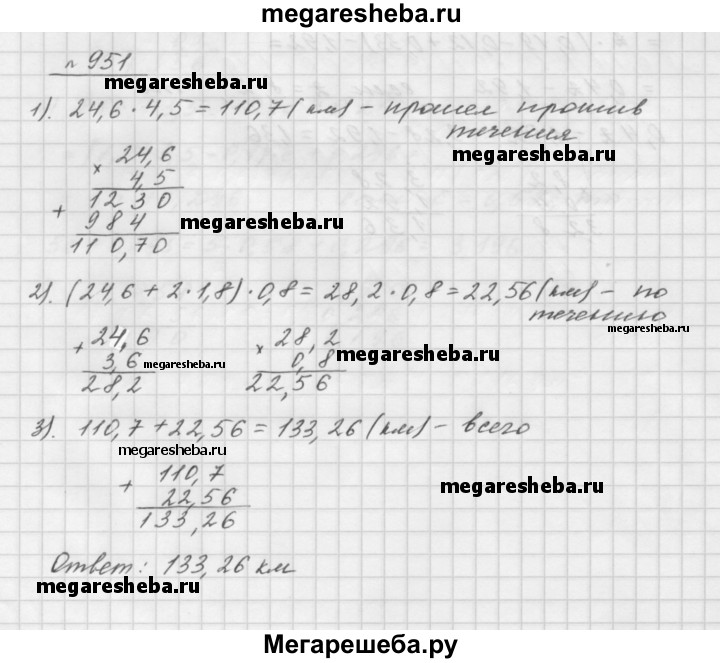 megaresheba.ru
n 951
megaresheba.ru
1). 24,6 · 4,5 = 110,7 (км) – прошел против
течения
megaresheba.ru
× 24,6
4,5
1230
+ 984
megaresheba.ru
110,70
2). (24,6 + 2·1,8) · 0,8 = 28,2 · 0,8 = 22,56 (км) – по
течению
megaresheba.ru
+ 24,6
3,6
28,2
megaresheba.ru
× 28,2
0,8
22,56
megaresheba.ru
3). 110,7 + 22,56 = 133,26 (км) – всего
megaresheba.ru
+ 110,7
22,56
133,26
megaresheba.ru
Ответ: 133,26 км
megaresheba.ru
Мегарешеба.ру